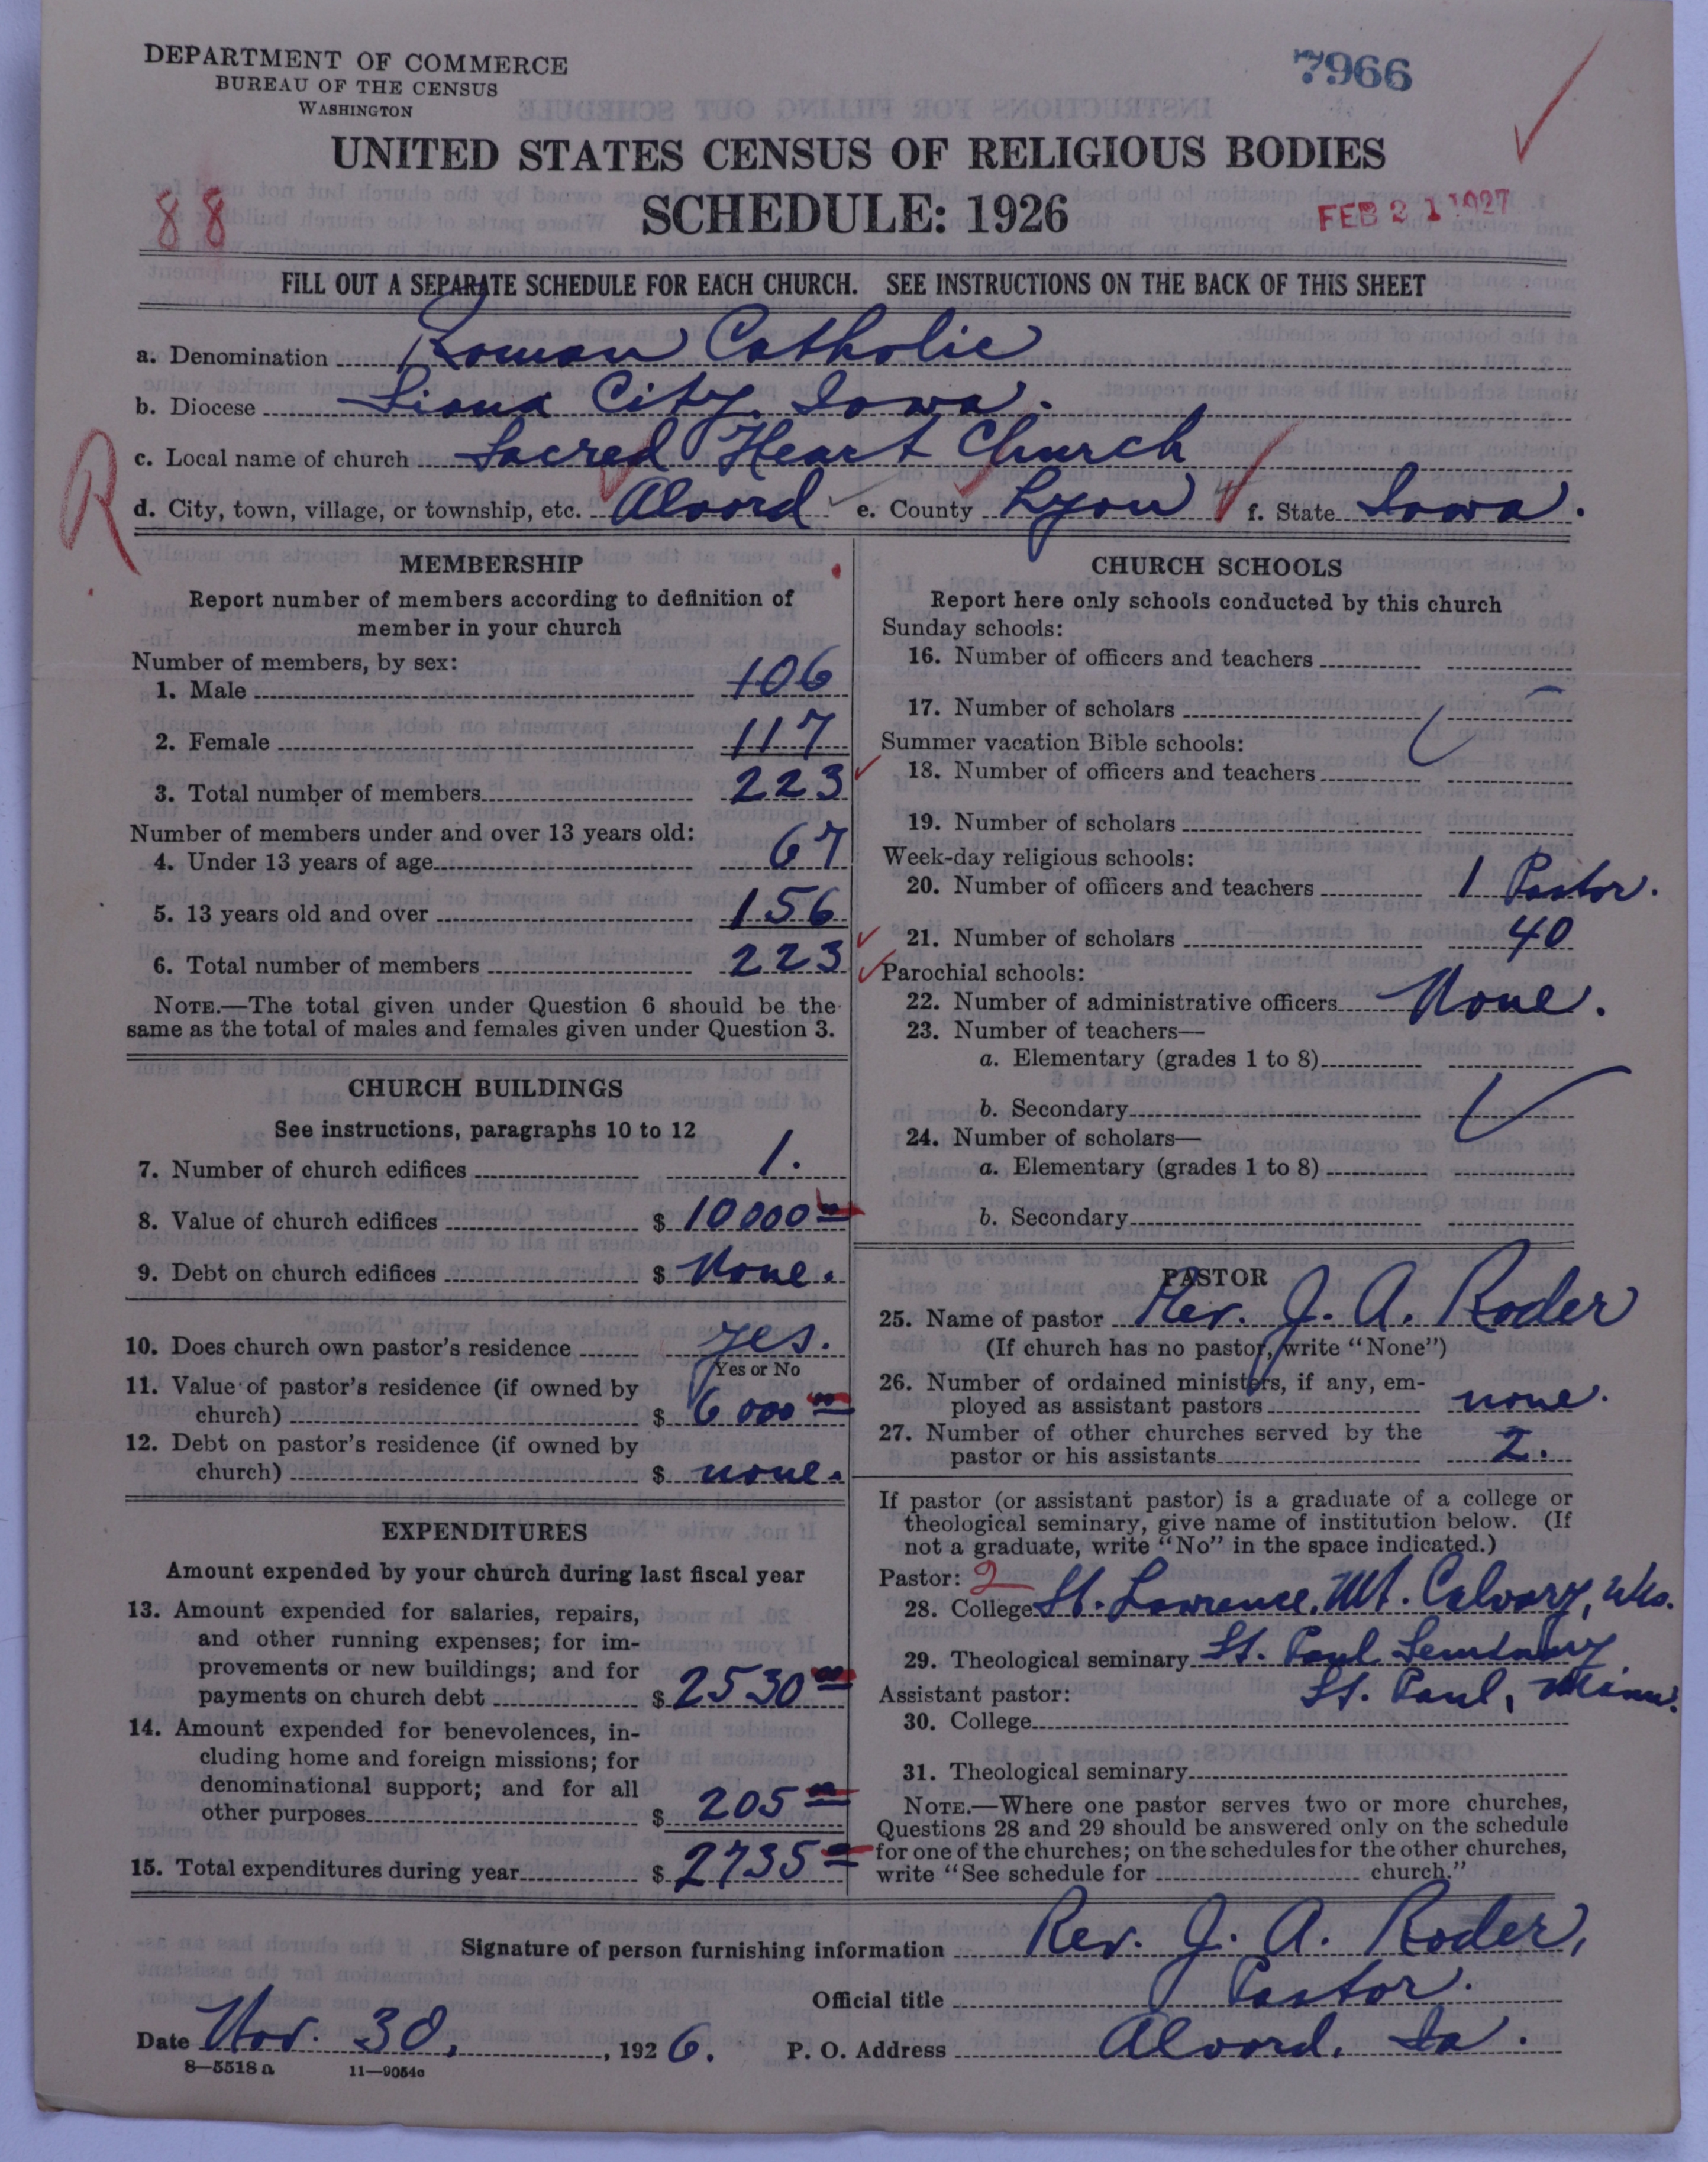 DEPARTMENT OF COMMERCE
BUREAU OF THE CENSUS
WASHINGTON
7966
UNITED STATES CENSUS OF RELIGIOUS BODIES
88
SCHEDULE: 1926
FEB 21 1927
FILL OUT A SEPARATE SCHEDULE FOR EACH CHURCH. SEE INSTRUCTIONS ON THE BACK OF THIS SHEET
a. Denomination Roman Catholic
b. Diocese Sioux City, Iowa.
R
c. Local name of church Sacred Heart Church
d. City, town, village, or township, etc. Alvord e. County Lyon f. State Iowa.
MEMBERSHIP
Report number of members according to definition of
member in your church
Number of members, by sex:
1. Male 106
2. Female 117
3. Total number of members 223
Number of members under and over 13 years old:
4. Under 13 years of age 67
5. 13 years old and over 156
6. Total number of members 223
NOTE.—The total given under Question 6 should be the
same as the total of males and females given under Question 3.
CHURCH BUILDINGS
See instructions, paragraphs 10 to 12
7. Number of church edifices 1.
8. Value of church edifices $ 10000 00
9. Debt on church edifices $ None.
10. Does church own pastor's residence yes.
Yes or No
11. Value of pastor's residence (if owned by
church) $ 6000 00
12. Debt on pastor's residence (if owned by
church) $ none.
EXPENDITURES
Amount expended by your church during last fiscal year
13. Amount expended for salaries, repairs,
and other running expenses; for im-
provements or new buildings; and for
payments on church debt $ 2530 00
14. Amount expended for benevolences, in-
cluding home and foreign missions; for
denominational support; and for all
other purposes $ 205 00
15. Total expenditures during year $ 2735 00
CHURCH SCHOOLS
Report here only schools conducted by this church
Sunday schools:
16. Number of officers and teachers
17. Number of scholars
Summer vacation Bible schools:
18. Number of officers and teachers
19. Number of scholars
Week-day religious schools:
20. Number of officers and teachers 1 Pastor.
21. Number of scholars 40
Parochial schools:
22. Number of administrative officers None.
23. Number of teachers—
a. Elementary (grades 1 to 8)
b. Secondary
24. Number of scholars—
a. Elementary (grades 1 to 8)
b. Secondary
PASTOR
25. Name of pastor Rev. J. A. Roder
(If church has no pastor, write "None")
26. Number of ordained ministers, if any, em-
ployed as assistant pastors none.
27. Number of other churches served by the
pastor or his assistants 2.
If pastor (or assistant pastor) is a graduate of a college or
theological seminary, give name of institution below. (If
not a graduate, write "No" in the space indicated.)
Pastor: 2
28. College St. Lawrence, Mt. Calvary, Wis.
29. Theological seminary St. Paul Seminary
Assistant pastor: St. Paul, Minn.
30. College
31. Theological seminary
NOTE.—Where one pastor serves two or more churches,
Questions 28 and 29 should be answered only on the schedule
for one of the churches; on the schedules for the other churches,
write "See schedule for church."
Signature of person furnishing information Rev. J. A. Roder,
Official title Pastor.
Date Nov. 30, , 1926. P. O. Address Alvord, Ia.
8—5518 a 11—9054c